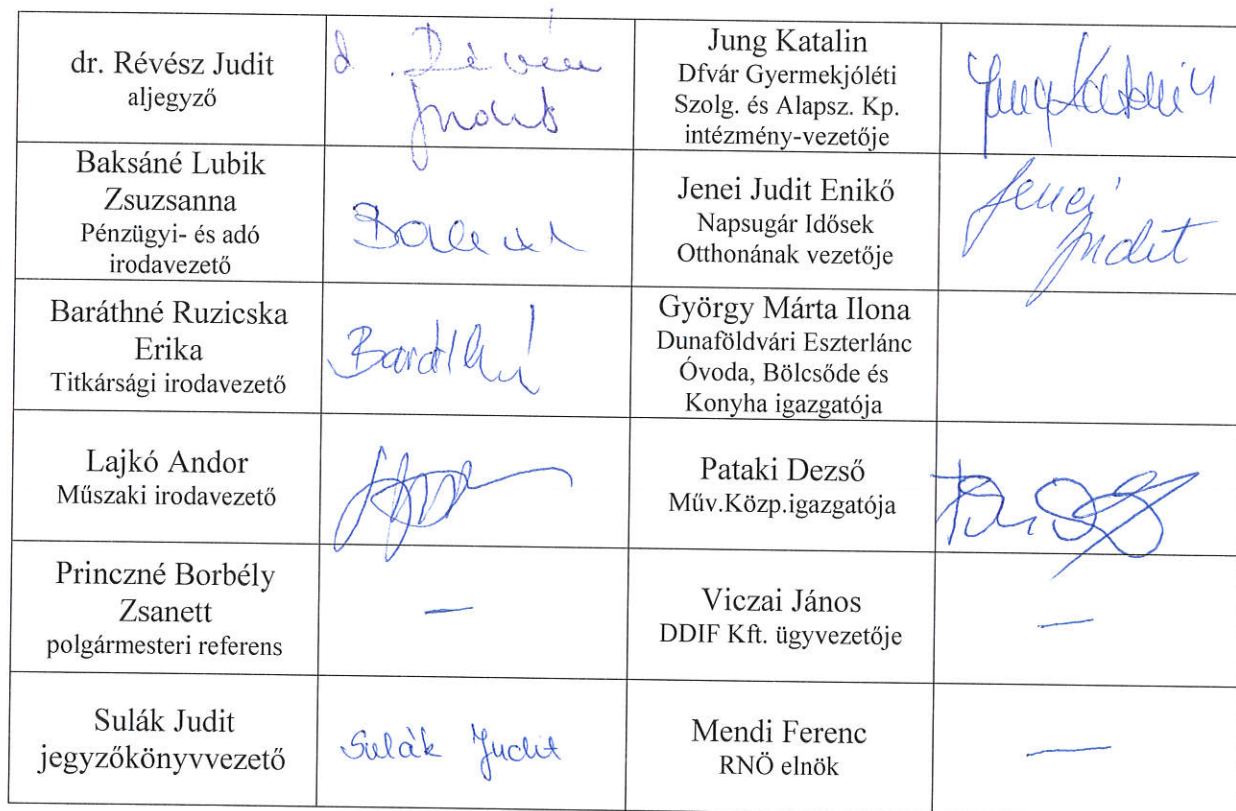 dr. Révész Judit
aljegyző
d. Révész
Judit
Jung Katalin
Dfvár Gyermekjóléti
Szolg. és Alapsz. Kp.
intézmény-vezetője
Jung Katalin
Baksáné Lubik
Zsuzsanna
Pénzügyi- és adó
irodavezető
Jenei Judit Enikő
Napsugár Idősek
Otthonának vezetője
Jenei
Judit
Baráthné Ruzicska
Erika
Titkársági irodavezető
Baráthné
György Márta Ilona
Dunaföldvári Eszterlánc
Óvoda, Bölcsőde és
Konyha igazgatója
Lajkó Andor
Műszaki irodavezető
Pataki Dezső
Műv.Közp.igazgatója
Princzné Borbély
Zsanett
polgármesteri referens
—
Viczai János
DDIF Kft. ügyvezetője
—
Sulák Judit
jegyzőkönyvvezető
Sulák Judit
Mendi Ferenc
RNÖ elnök
—